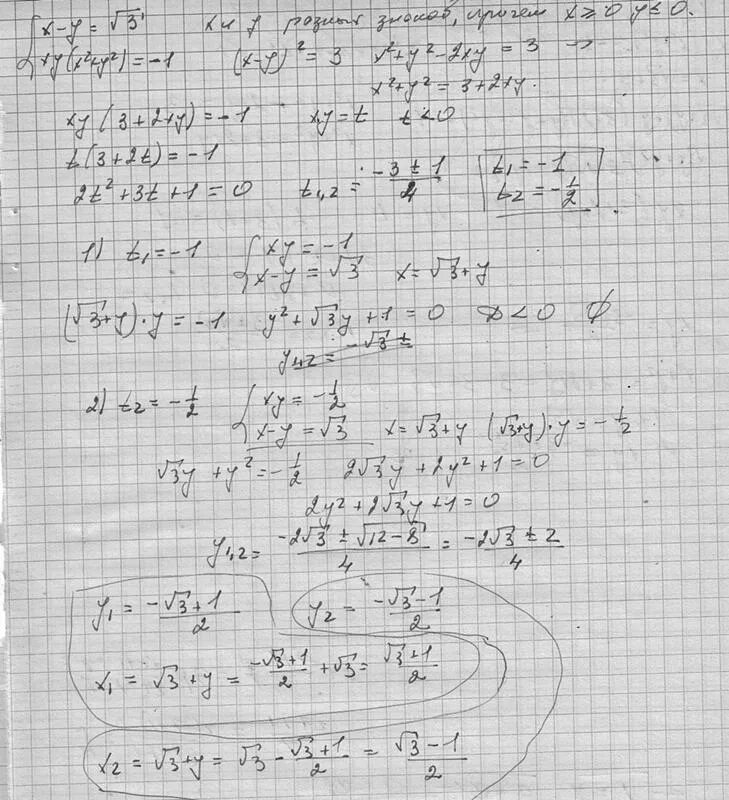 { x-y = √3   x и y разных знаков, причем x ≥ 0 y ≤ 0.
xy(x²+y²) = -1   (x-y)² = 3   x²+y²-2xy = 3 →
x²+y² = 3+2xy.
xy (3+2xy) = -1   xy = t   t < 0
t(3+2t) = -1
2t²+3t+1 = 0   t₁,₂ = (-3 ± 1)/4   t₁ = -1
t₂ = -1/2
1) t₁ = -1   { xy = -1
x-y = √3   x = √3+y
(√3+y)·y = -1   y²+√3y+1 = 0   D < 0   ∅
y₁,₂ = -√3 ±
2) t₂ = -1/2   { xy = -1/2
x-y = √3   x = √3+y   (√3+y)·y = -1/2
√3y + y² = -1/2   2√3y + 2y² + 1 = 0
2y² + 2√3y + 1 = 0
y₁,₂ = (-2√3 ± √(12-8))/4 = (-2√3 ± 2)/4
y₁ = (-√3+1)/2   y₂ = (-√3-1)/2
x₁ = √3+y = (-√3+1)/2 + √3 = (√3+1)/2
x₂ = √3+y = √3 - (√3+1)/2 = (√3-1)/2